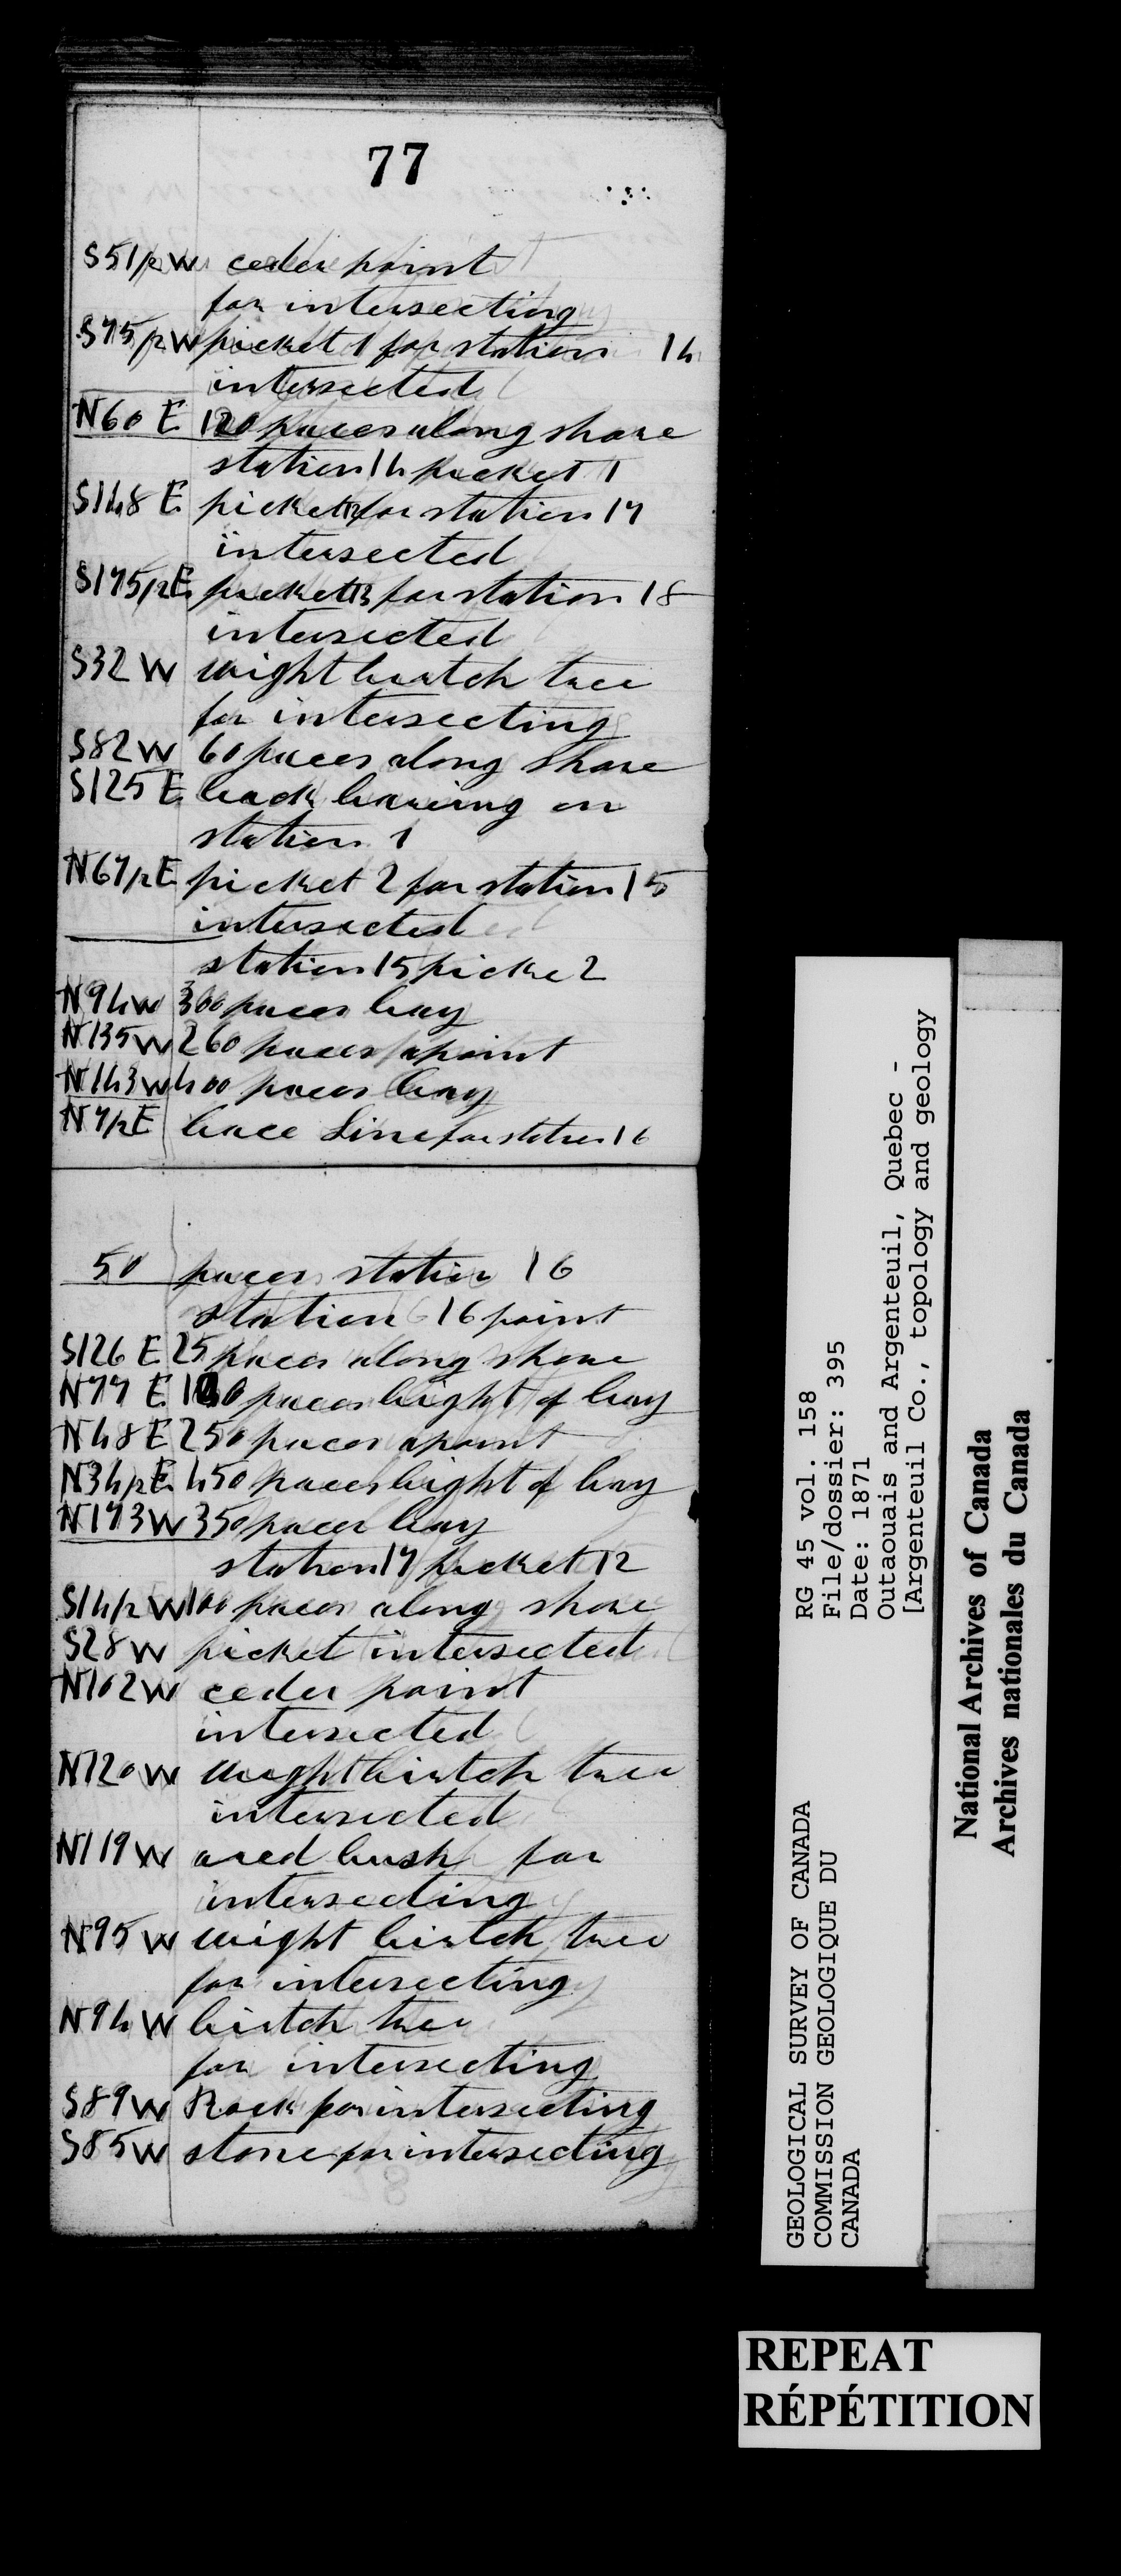 77
S51/2 W ceder point
for intersecting
S75/2 W picket 1 for station 14
intersected
N60 E 120 paces along shore
station 14 picket 1
S148 E picket 12 for station 17
intersected
S175/2 E picket 13 for station 18
intersected
S32 W wight birtch tree
for intersecting
S82 W 60 paces along shore
S125 E back bearing on
station 1
N67/2 E picket 2 for station 15
intersected
station 15 picke 2
N94 W 300 paces bay
N135 W 260 paces apoint
N143 W 400 paces bay
N7/2 E bace Line for station 16
50 paces station 16
station 16 point
S126 E 25 paces along shore
N77 E paces bight of bay
N48 E 250 paces apoint
N34/2 E 450 paces bight of bay
N173 W 350 paces bay
station 17 picket 12
S14/2 W 100 paces along shore
S28 W picket intersected
N102 W ceder point
intersected
N120 W wight birtch tree
intersected
N119 W ared bush for
intersecting
N95 W wight birtch tree
for intersecting
N94 W birtch tree
for intersecting
S89 W Rock for intersecting
S85 W stone for intersecting
RG 45 vol. 158
File/dossier: 395
Date: 1871
Outaouais and Argenteuil, Quebec -
[Argenteuil Co., topology and geology
GEOLOGICAL SURVEY OF CANADA
COMMISSION GEOLOGIQUE DU
CANADA
National Archives of Canada
Archives nationales du Canada
REPEAT
RÉPÉTITION